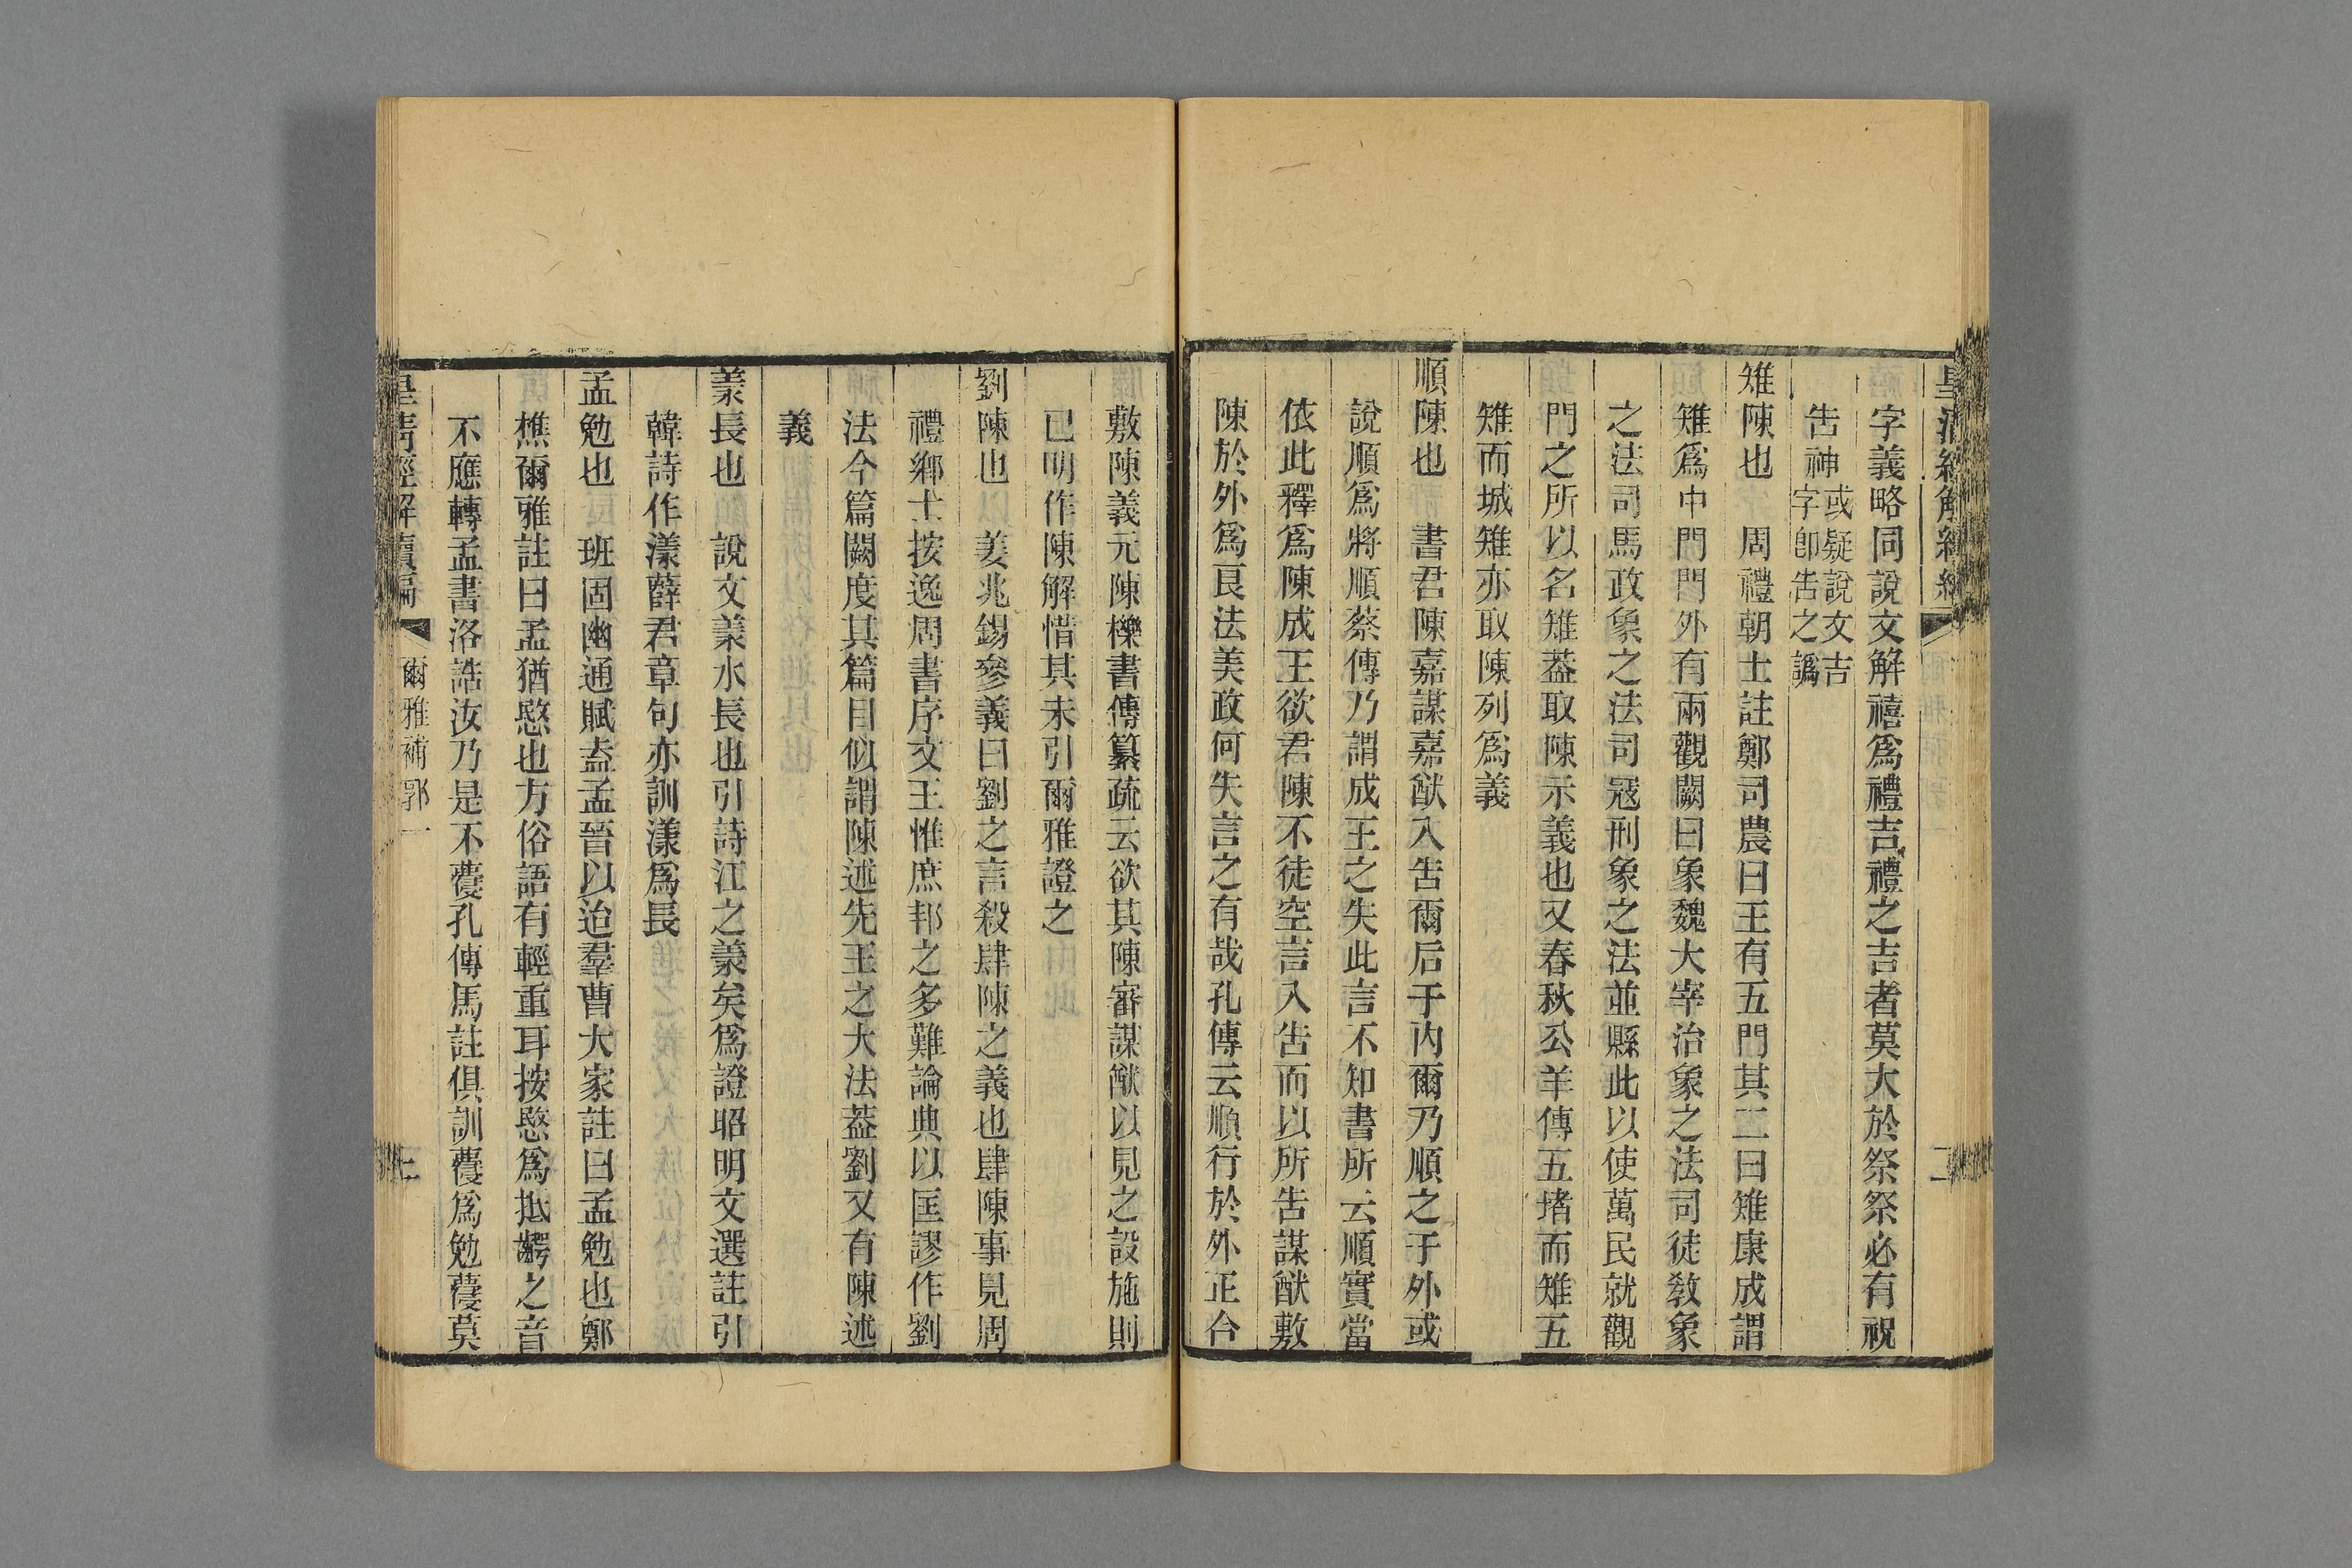 字義略同說文解禧爲禮吉禮之吉者莫大於祭祭必有祝
告神或疑說文吉字卽告之譌
雉陳也　周禮朝士註鄭司農曰王有五門其二曰雉康成謂
雉爲中門門外有兩觀闕曰象魏大宰治象之法司徒敎象
之法司馬政象之法司寇刑象之法並縣此以使萬民就觀
門之所以名雉葢取陳示義也又春秋公羊傳五堵而雉五
雉而城雉亦取陳列爲義
順陳也　書君陳嘉謀嘉猷入告爾后于內爾乃順之于外或
說順爲將順蔡傳乃謂成王之失此言不知書所云順實當
依此釋爲陳成王欲君陳不徒空言入告而以所告謀猷敷
陳於外爲良法美政何失言之有哉孔傳云順行於外正合
敷陳義元陳櫟書傳纂疏云欲其陳審謀猷以見之設施則
已明作陳解惜其未引爾雅證之
劉陳也　姜兆錫參義曰劉之言殺肆陳之義也肆陳事見周
禮鄉士按逸周書序文王惟庶邦之多難論典以匡謬作劉
法今篇闕度其篇目似謂陳述先王之大法葢劉又有陳述
義
羕長也　說文羕水長也引詩江之羕矣爲證昭明文選註引
韓詩作漾薛君章句亦訓漾爲長
孟勉也　班固幽通賦盍孟晉以迨羣曹大家註曰孟勉也鄭
樵爾雅註曰孟猶愍也方俗語有輕重耳按愍爲抵齶之音
不應轉孟書洛誥汝乃是不蘉孔傳馬註俱訓蘉爲勉蘉莫
皇淸經解續編　爾雅補郭一　七